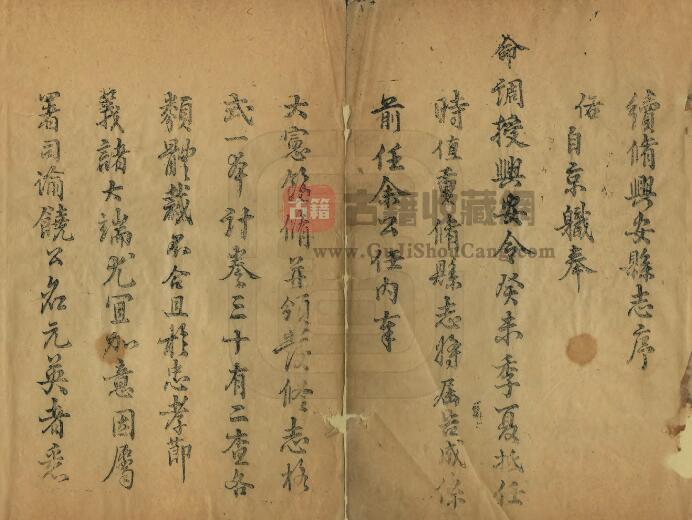 續脩興安縣志序
伍自京職奉
命調授興安令癸未季夏抵任
時值重脩縣志將屆告成係
前任余公任內奉
大憲飭脩並領發修志格
式一本計卷三十有二查各
類體裁不合且於忠孝節
義諸大端尤宜加意因屬
署司諭饒公名元英者悉
古籍
古籍收藏網
www.GuJiShouCang.com